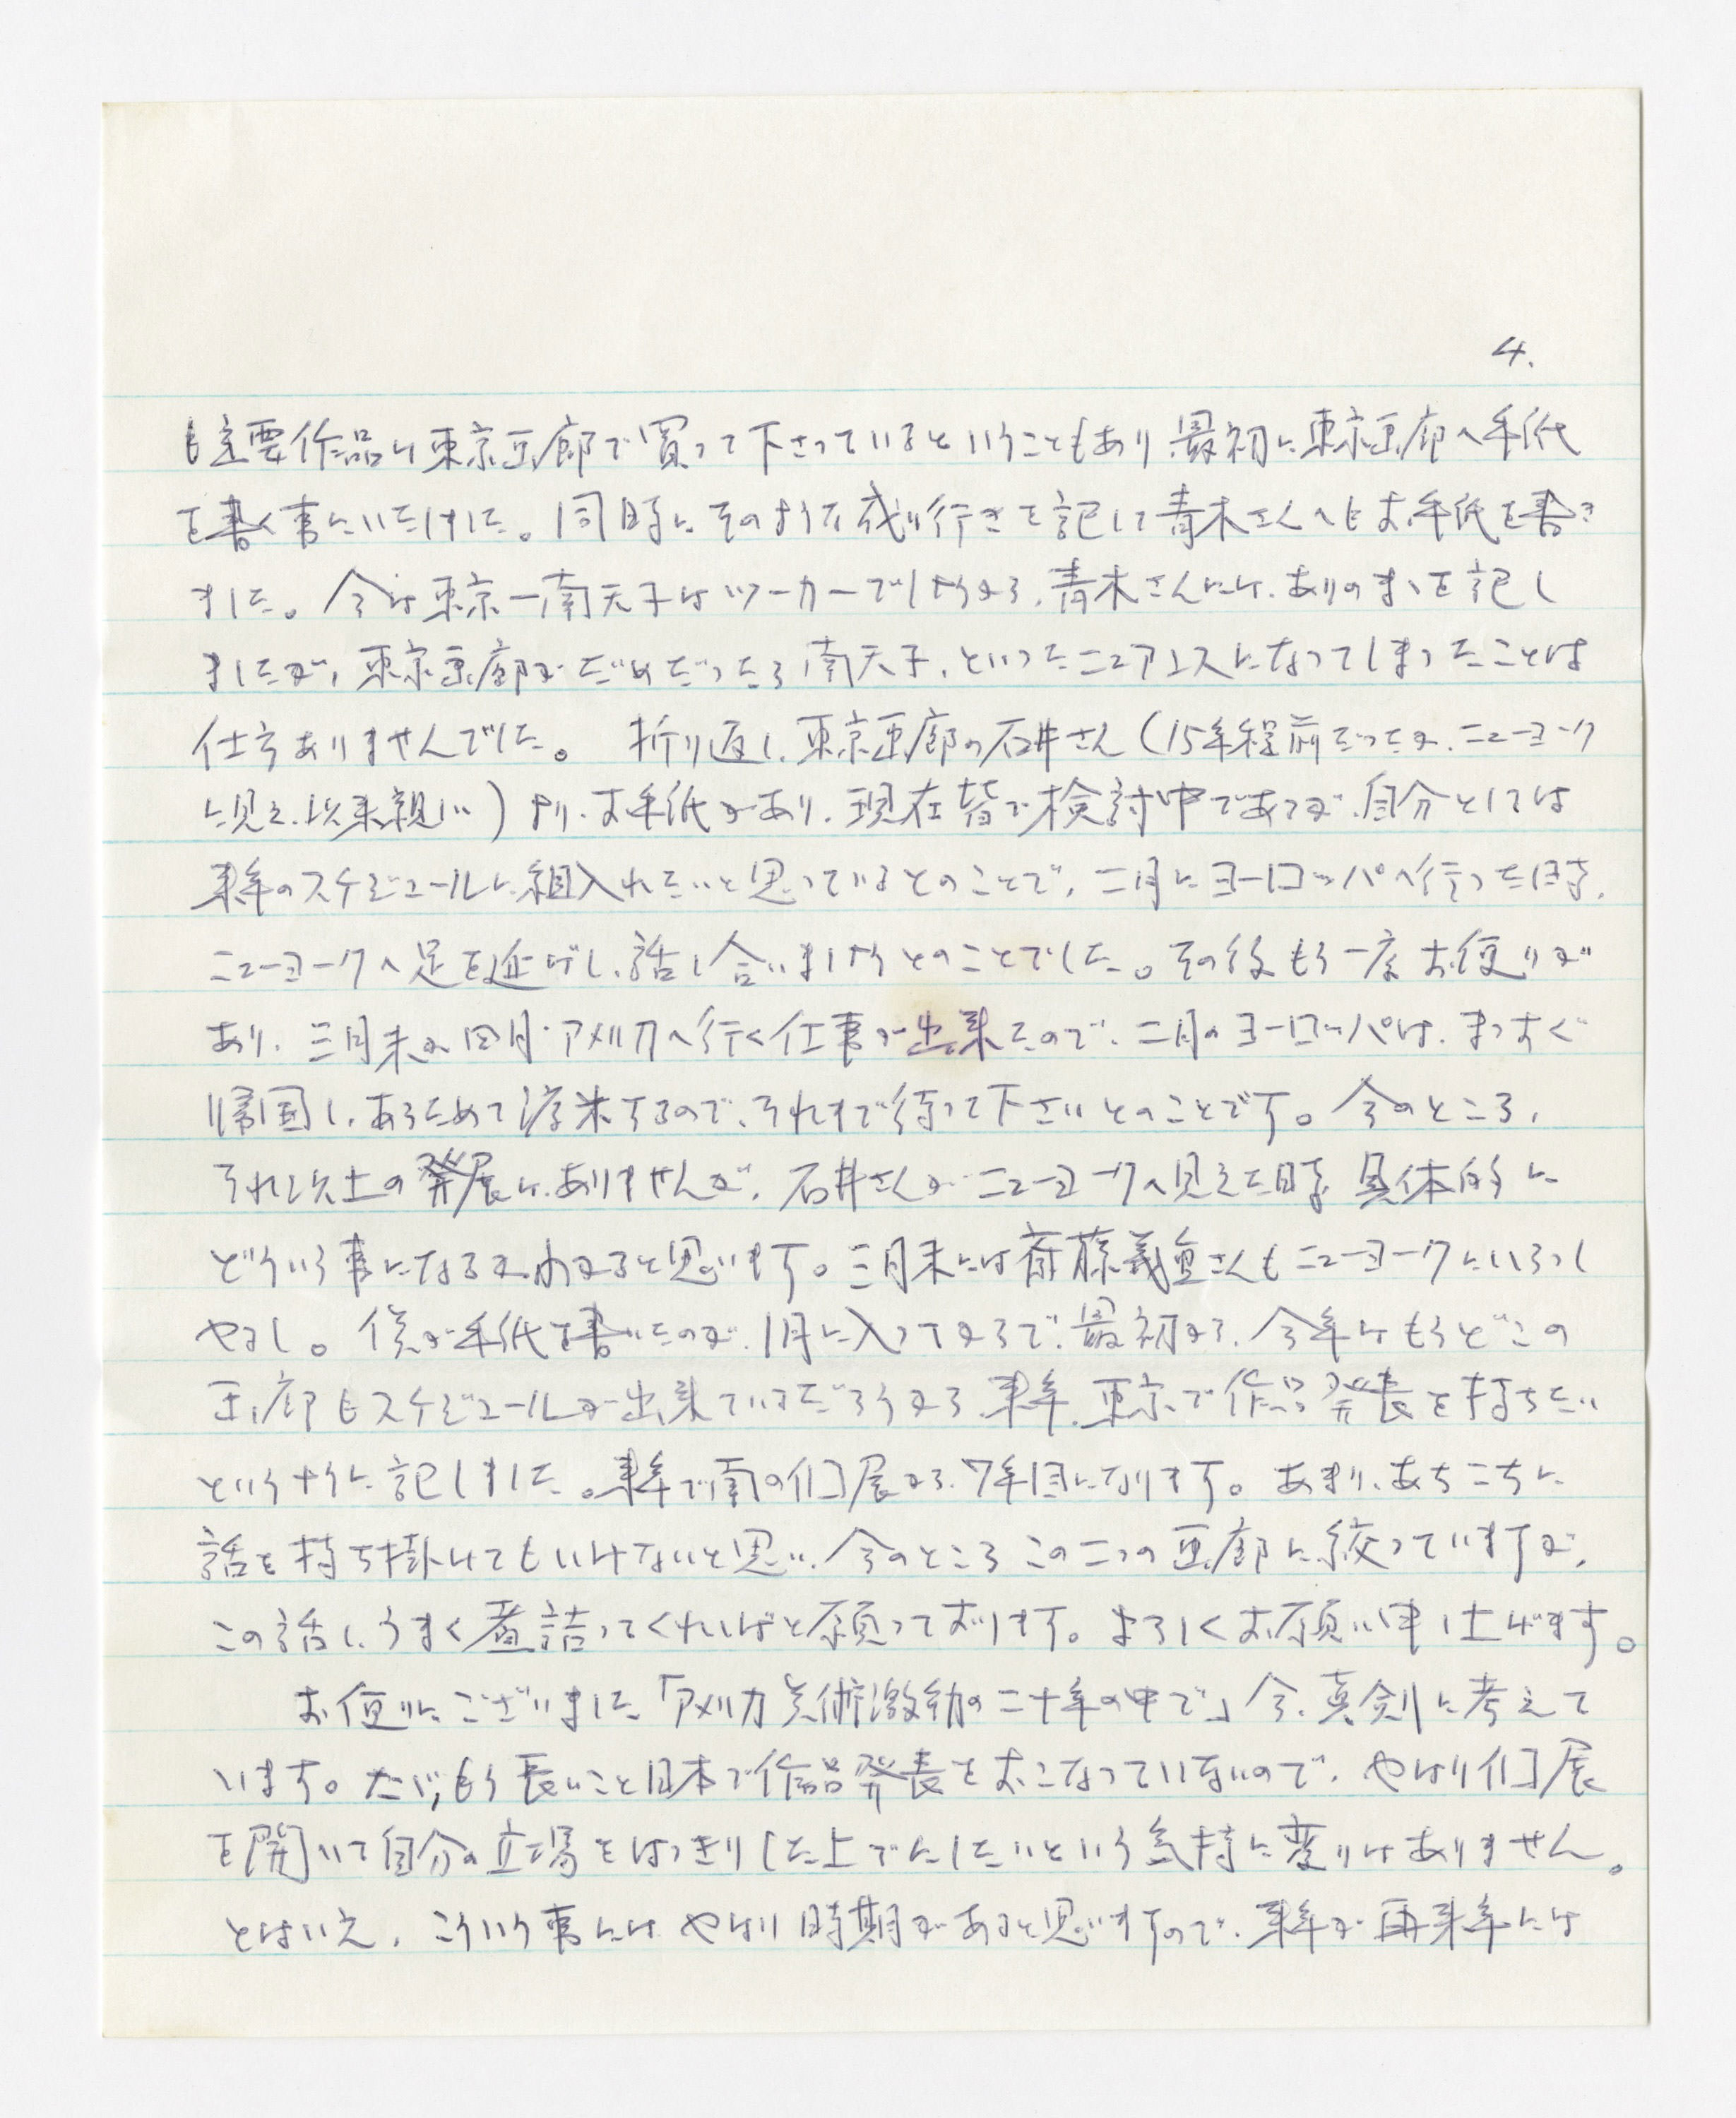 4.
も主要作品は東京画廊で買って下さっているということもあり、最初に東京画廊へ手紙
を書く事にいたしました。同時にそのような成り行きを記して青木さんへもお手紙を書き
ました。今は東京―南天子はツーカーでしょうから、青木さんには、ありのまゝを記し
ましたが、東京画廊がだめだったら南天子、といったニュアンスになってしまったことは
仕方ありませんでした。 折り返し、東京画廊の石井さん(15年程前だったか、ニューヨーク
に見え、以来親しい)より、お手紙があり、現在皆で検討中であるが、自分としては
来年のスケジュールに組入れたいと思っているとのことで、二月にヨーロッパへ行った時、
ニューヨークへ足を延ばし、話し合いましょうとのことでした。その後もう一度お便りが
あり、三月末か四月、アメリカへ行く仕事が出来たので、二月のヨーロッパは、まっすぐ
帰国し、あらためて渡米するので、それまで待って下さいとのことです。今のところ、
それ以上の発展は、ありませんが、石井さんがニューヨークへ見えた時、具体的に
どういう事になるか、わかると思います。三月末には斎藤義重さんもニューヨークにいらっし
やるし。僕が手紙を書いたのが、1月に入ってからで、最初から、今年はもうどこの
画廊もスケジュールが出来ているだろうから、来年、東京で作品発表を持ちたい
というように記しました。来年で南の個展から、7年目になります。あまり、あちこちに
話を持ち掛けてもいけないと思い、今のところこの二つの画廊に絞っていますが、
この話し、うまく煮詰ってくれればと願っております。よろしくお願い申し上げます。
お便りにございました「アメリカ美術激動の二十年の中で」今、真剣に考えて
います。たゞ、もう長いこと日本で作品発表をおこなっていないので、やはり個展
を開いて自分の立場をはっきりした上でにしたいという気持に変りはありません。
とはいえ、こういう事には やはり時期があると思いますので、来年か再来年には